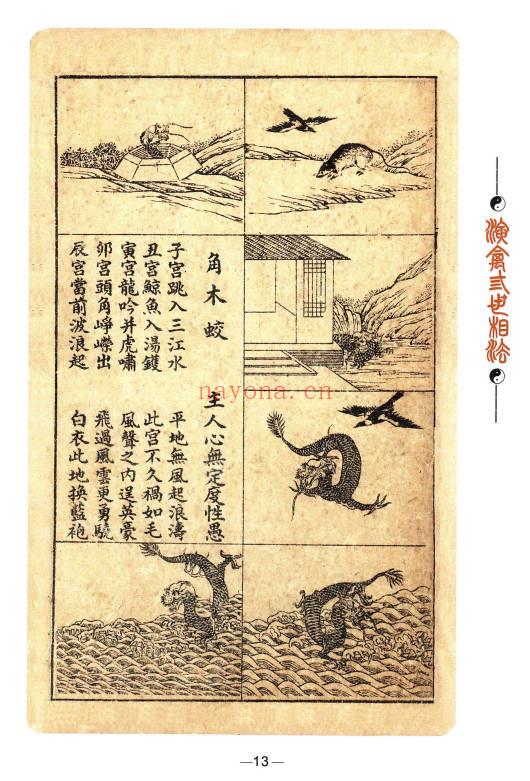 演禽三世相法
角木蛟
主人心無定度性愚
子宮跳入三江水
平地無風起浪濤
丑宮鯨魚入湯鑊
此宮不久禍如毛
寅宮龍吟并虎嘯
風聲之內逞英豪
卯宮頭角崢嶸出
飛過風雲更勇驍
辰宮當前波浪起
白衣此地換藍袍
nayona.cn
—13—